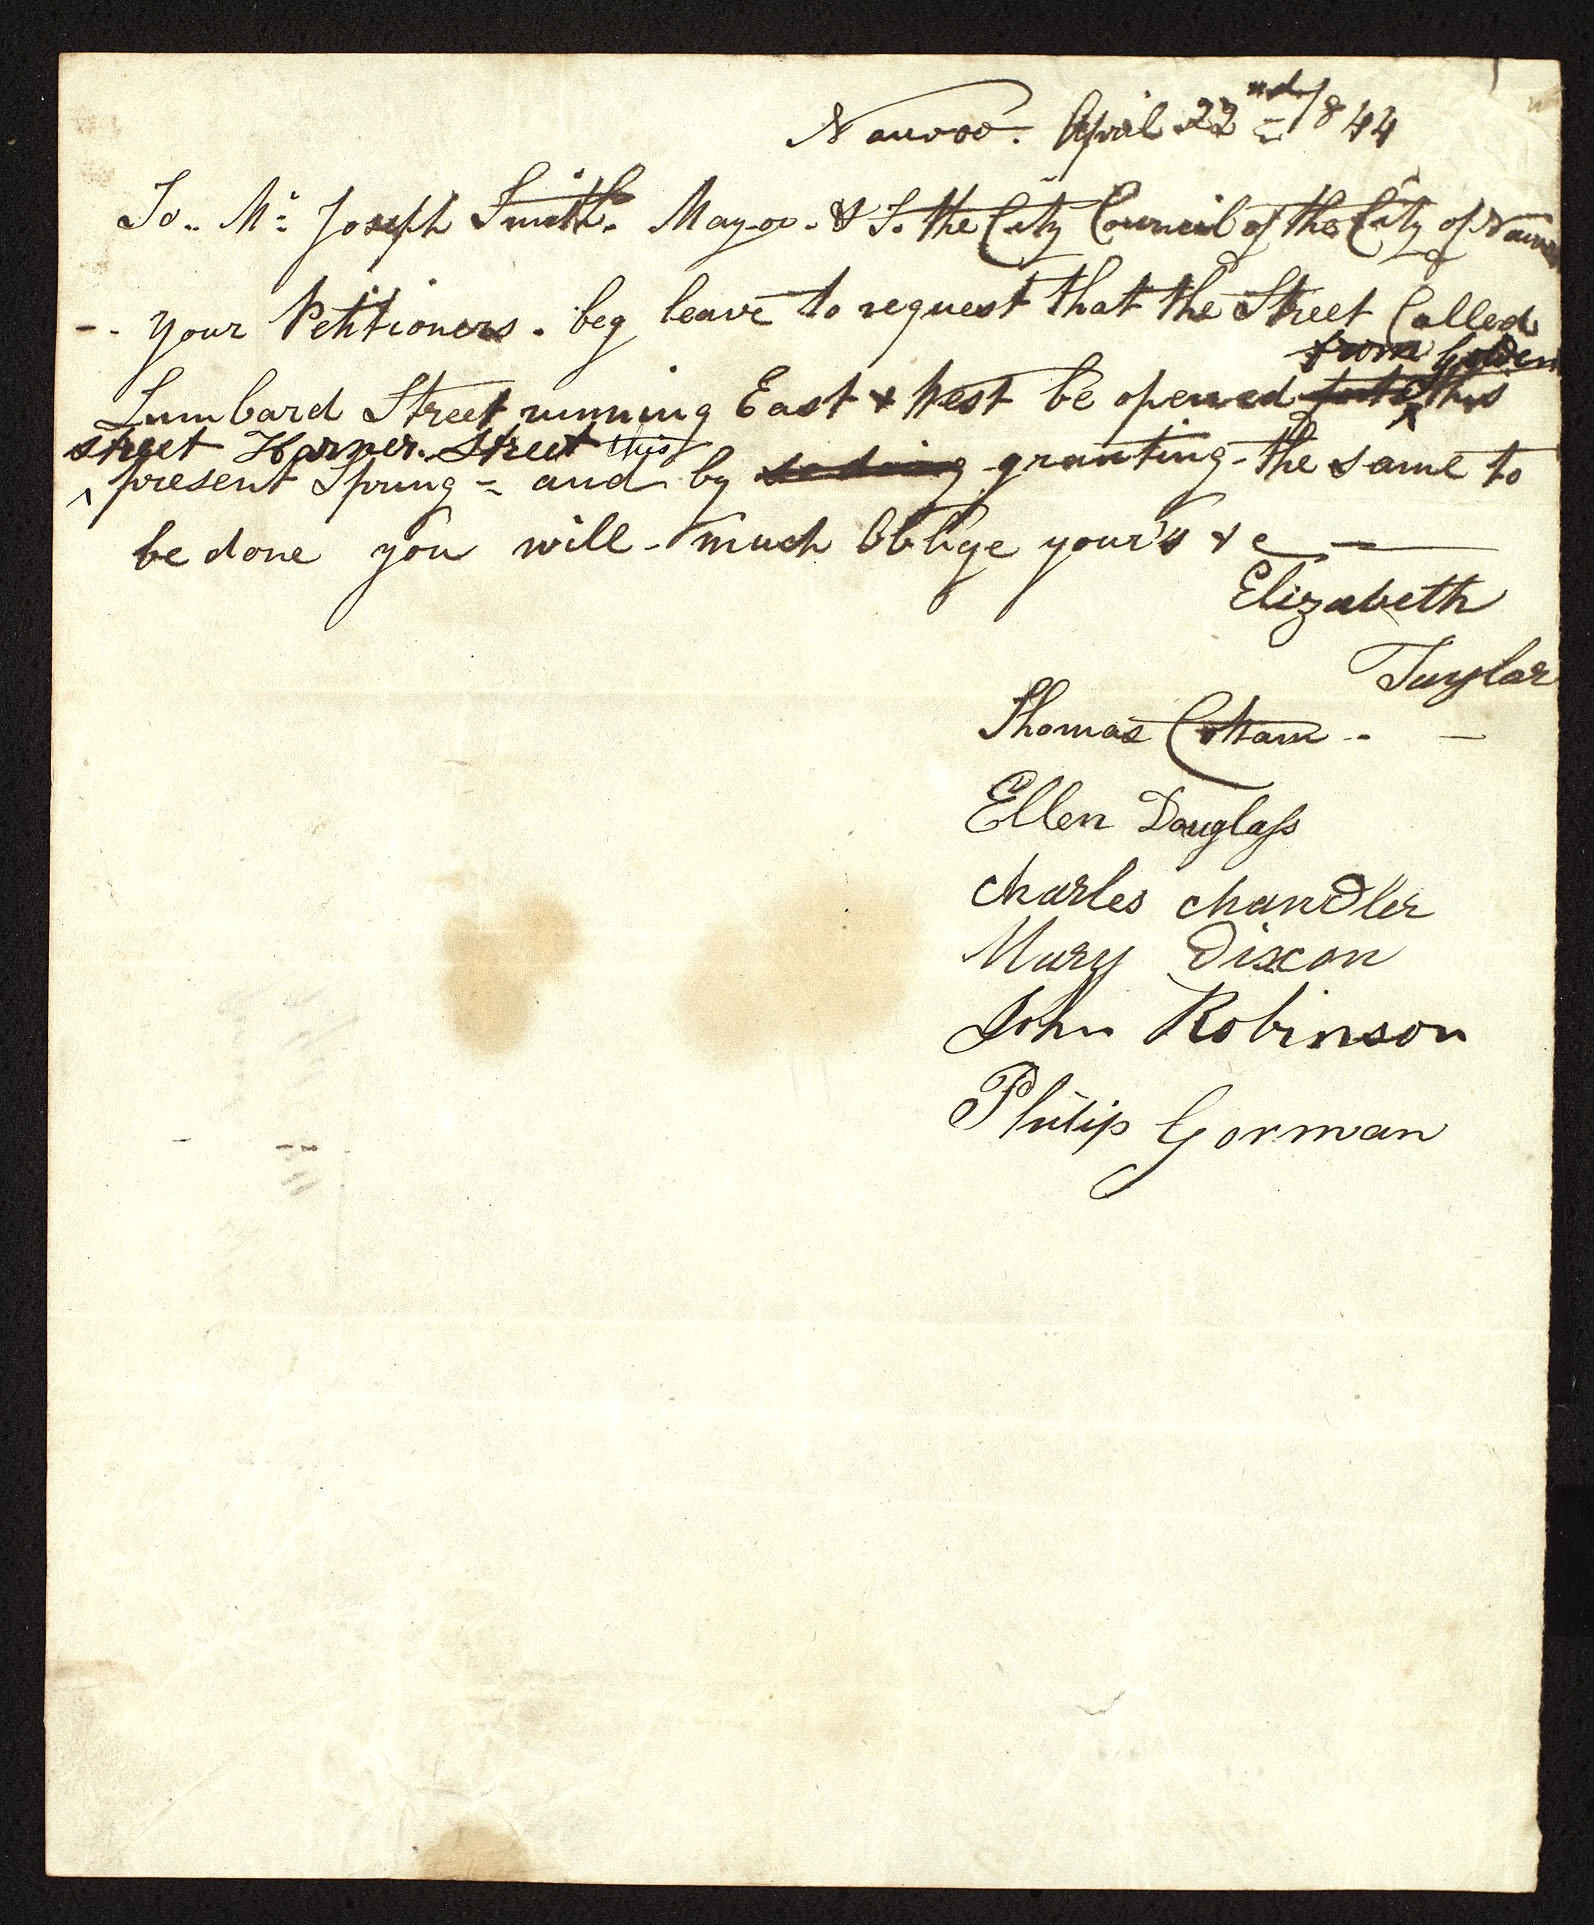 Nauvoo. April 22nd 1844
To.. Mr Joseph Smith. Mayor. & To the City Council of the City of Nauvoo
-- your Petitioners. beg leave to request that the Street Called
from Golden
Lumbard Street running East & West be opened this
street Harner. Street this
present Spring - and by so doing granting the same to
be done you will much Oblige your's &c
Elizabeth
Taylor
Thomas Cottam
Ellen Douglass
Charles Chandler
Mary Dixon
John Robinson
Philip Gorman